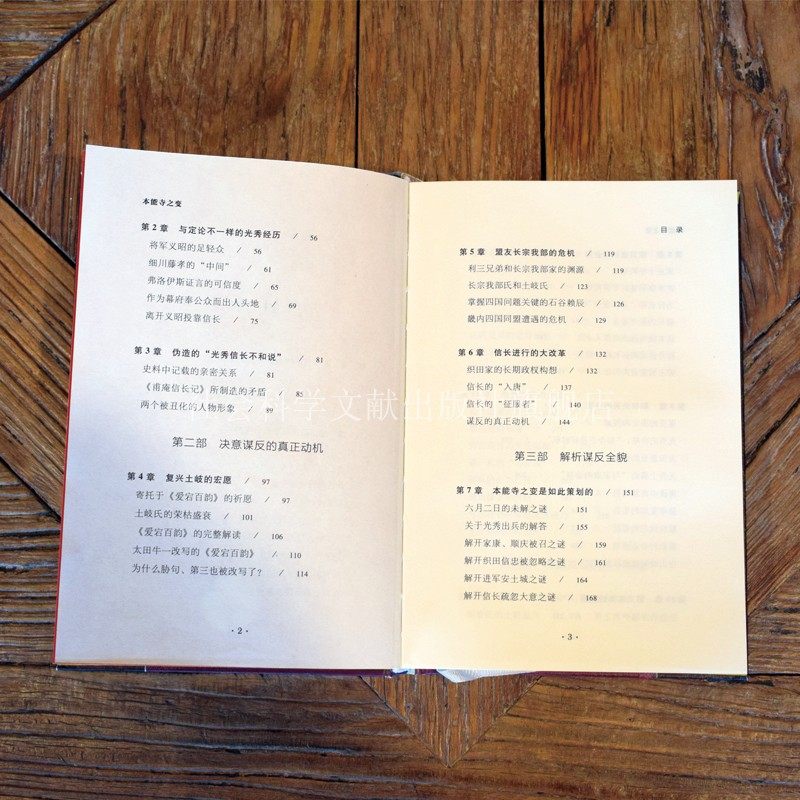 本能寺之变
第2章 与定论不一样的光秀经历 / 56
将军义昭的足轻众 / 56
细川藤孝的“中间” / 61
弗洛伊斯证言的可信度 / 65
作为幕府奉公众而出人头地 / 69
离开义昭投靠信长 / 75
第3章 伪造的“光秀信长不和说” / 81
史料中记载的亲密关系 / 81
《甫庵信长记》所制造的矛盾 / 85
两个被丑化的人物形象 / 89
第二部 决意谋反的真正动机
第4章 复兴土岐的宏愿 / 97
寄托于《爱宕百韵》的祈愿 / 97
土岐氏的荣枯盛衰 / 101
《爱宕百韵》的完整解读 / 106
太田牛一改写的《爱宕百韵》 / 110
为什么胁句、第三也被改写了？ / 114
·2·
目录
第5章 盟友长宗我部的危机 / 119
利三兄弟和长宗我部家的渊源 / 119
长宗我部氏和土岐氏 / 123
掌握四国问题关键的石谷赖辰 / 126
畿内四国同盟遭遇的危机 / 129
第6章 信长进行的大改革 / 132
织田家的长期政权构想 / 132
信长的“入唐” / 137
信长的“征庸者” / 140
谋反的真正动机 / 144
第三部 解析谋反全貌
第7章 本能寺之变是如此策划的 / 151
六月二日的未解之谜 / 151
关于光秀出兵的解答 / 155
解开家康、顺庆被召之谜 / 159
解开织田信忠被忽略之谜 / 161
解开进军安土城之谜 / 164
解开信长疏忽大意之谜 / 168
·3·